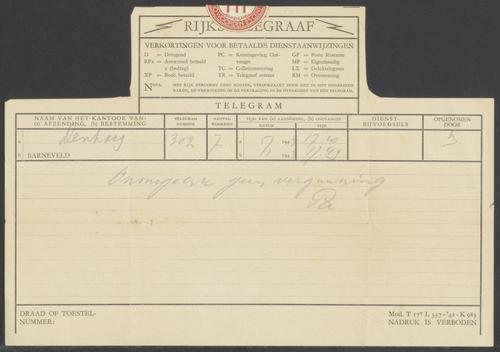 RIJKSTELEGRAAF
VERKORTINGEN VOOR BETAALDE DIENSTAANWIJZINGEN
D = Dringend
RPx = Antwoord betaald x (bedrag)
XP = Bode betaald
PC = Kennisgeving Ontvangst
TC = Collationneering
TR = Telegraaf restant
GP = Poste Restante
MP = Eigenhandig
LX = Gelukstelegram
RM = Overseining
TELEGRAM
NAAM VAN HET KANTOOR VAN:
(a) AFZENDING, (b) BESTEMMING
TELEGRAM NUMMER
AANTAL WOORDEN
TIJD VAN (a) AANNEMING, (b) ONTVANGST
DATUM
TIJD
DIENST-BIJVOEGSELS
OPGENOMEN DOOR
a Den Haag 302 7 a 194
b BARNEVELD b 194
Onmogelijk geen vergunning
DRAAD OF TOESTEL-
NUMMER:
Mod. T 17* L 357 - '42 - K 983
NADRUK IS VERBODEN